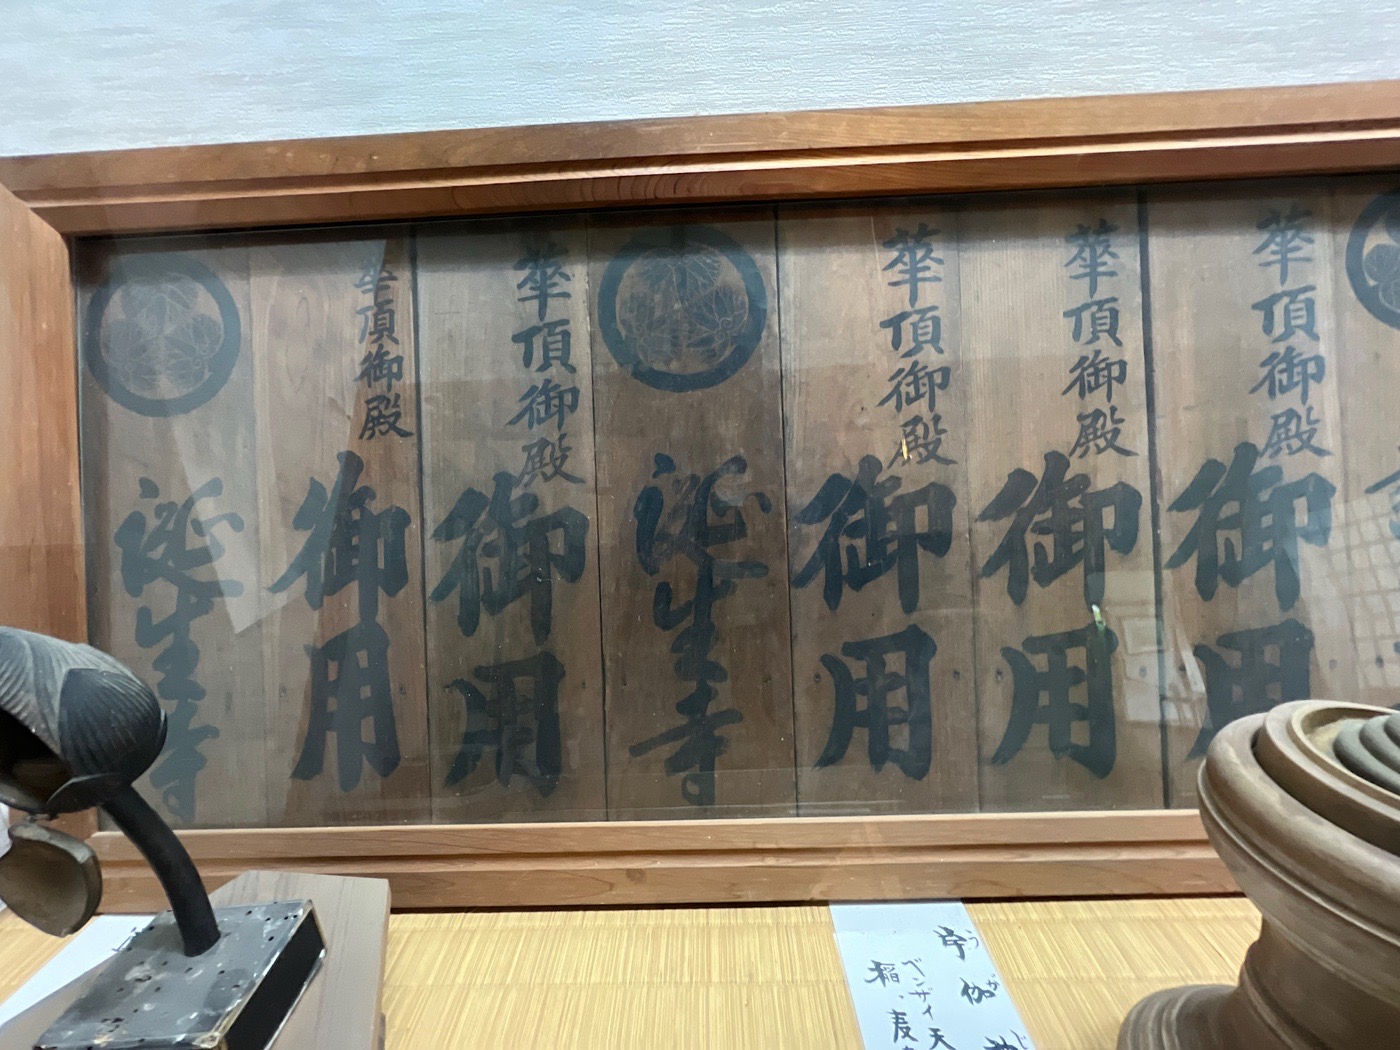 華頂御殿
御用
華頂御殿
御用
華頂御殿
御用
誕生寺
華頂御殿
御用
華頂御殿
御用
誕生寺
宇伽
うが
じ
ベンザイ天
稲、麦